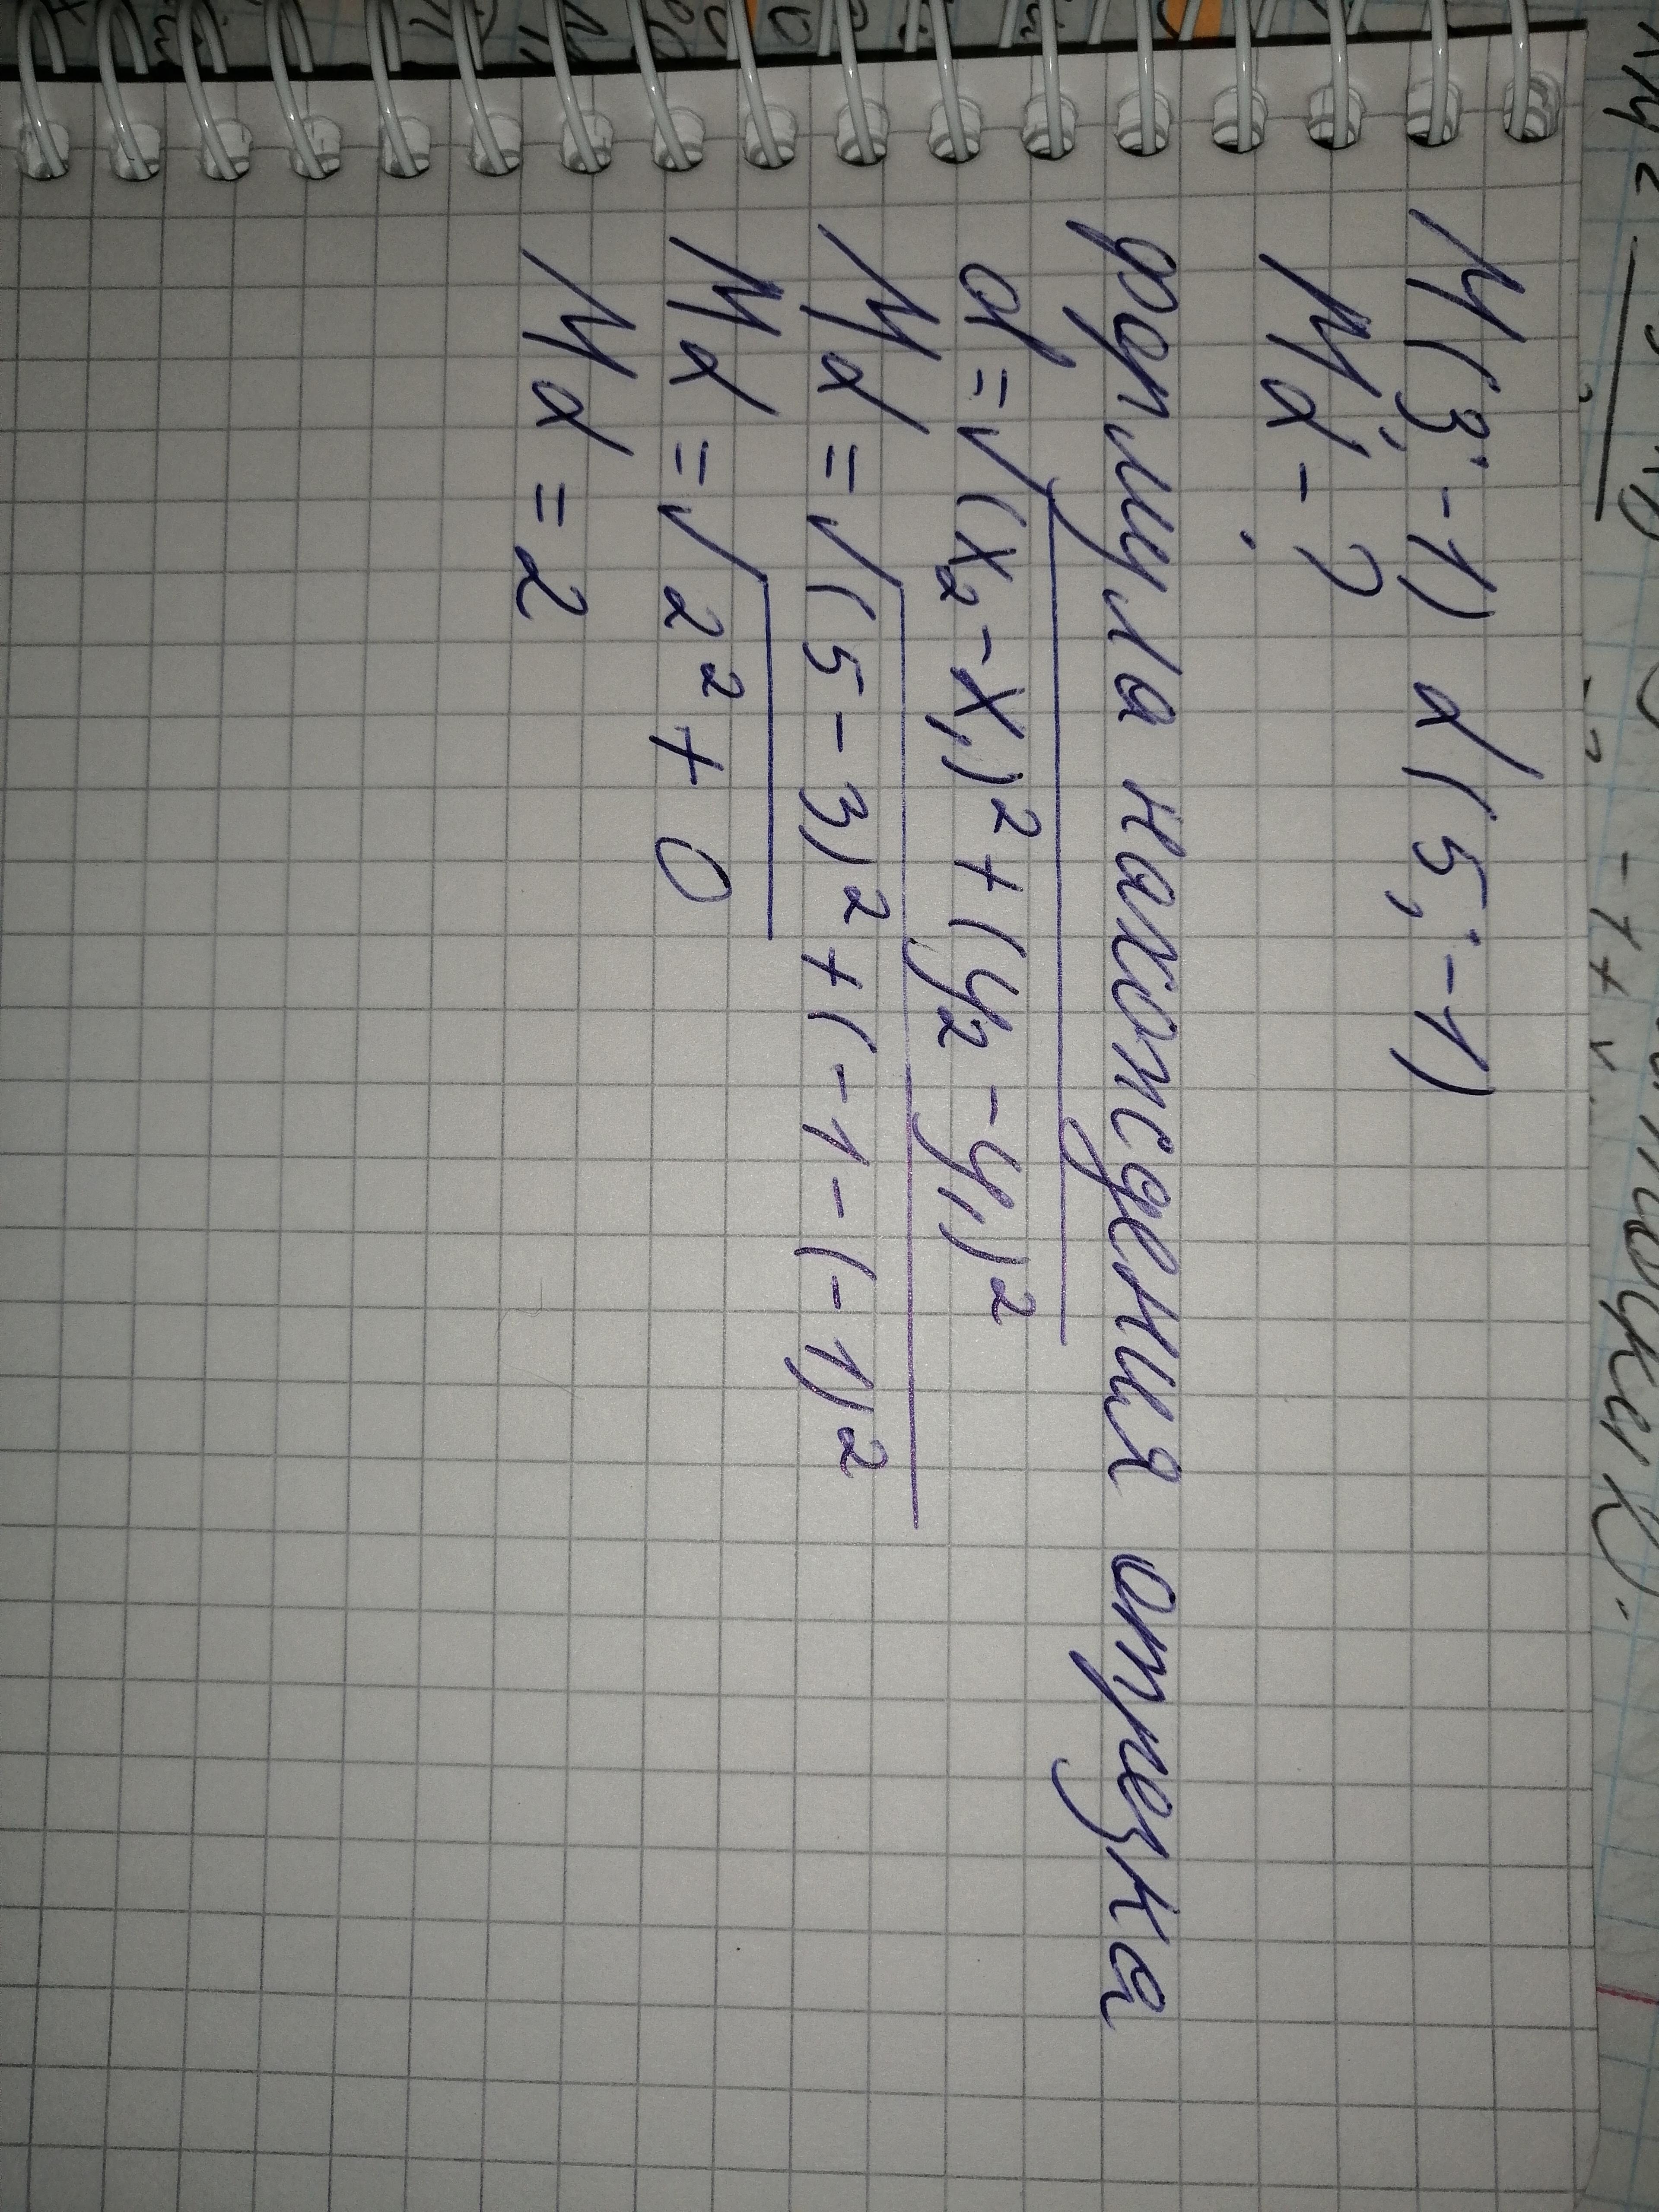 M(3; -1) d(5; -1)
Md - ?
формула нахождения отрезка
d = √(x₂ - x₁)² + (y₂ - y₁)²
Md = √(5 - 3)² + (-1 - (-1)²
Md = √2² + 0
Md = 2